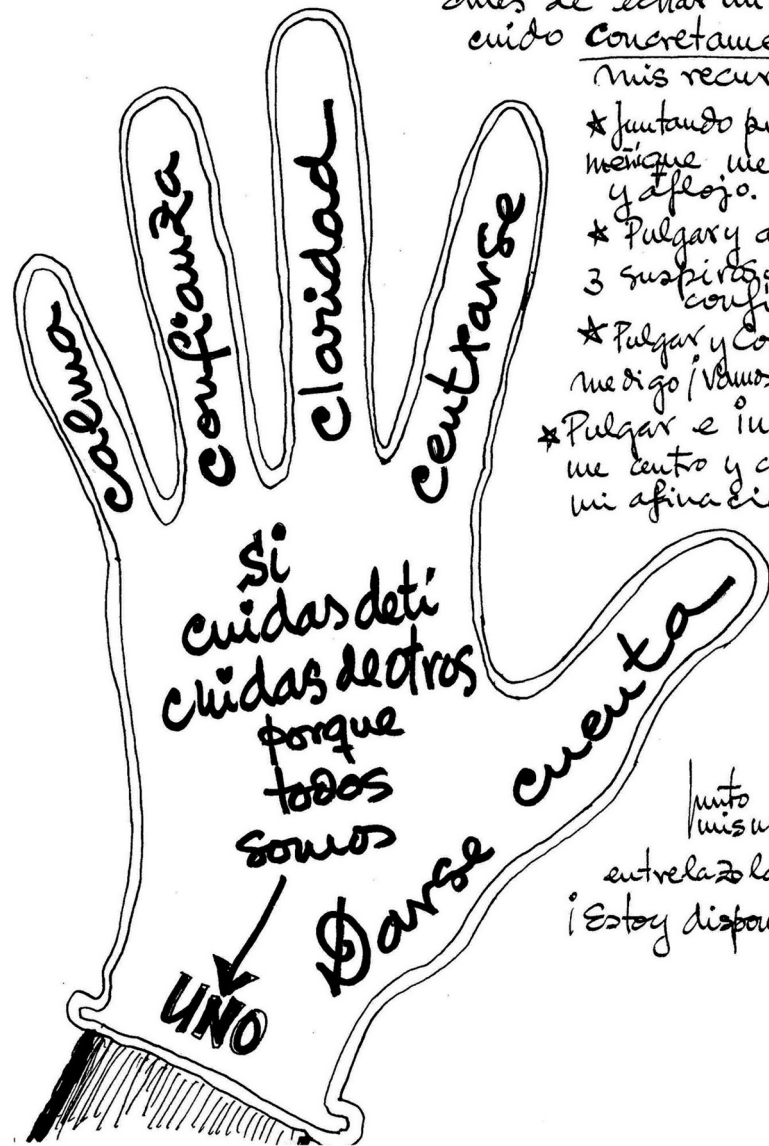 cuido concretame
mis recur
* Juntando pu
meñique me
y aflojo.
* Pulgar y a
3 suspiros
confi
* Pulgar y Co
me digo ¡Vamos
* Pulgar e in
me centro y a
mi afinaci
calma
confianza
claridad
centrarse
Darse cuenta
Si
cuidas de tí
cuidas de otros
porque
todos
somos
UNO
Junto
mis m
entrelazo la
¡Estoy dispon